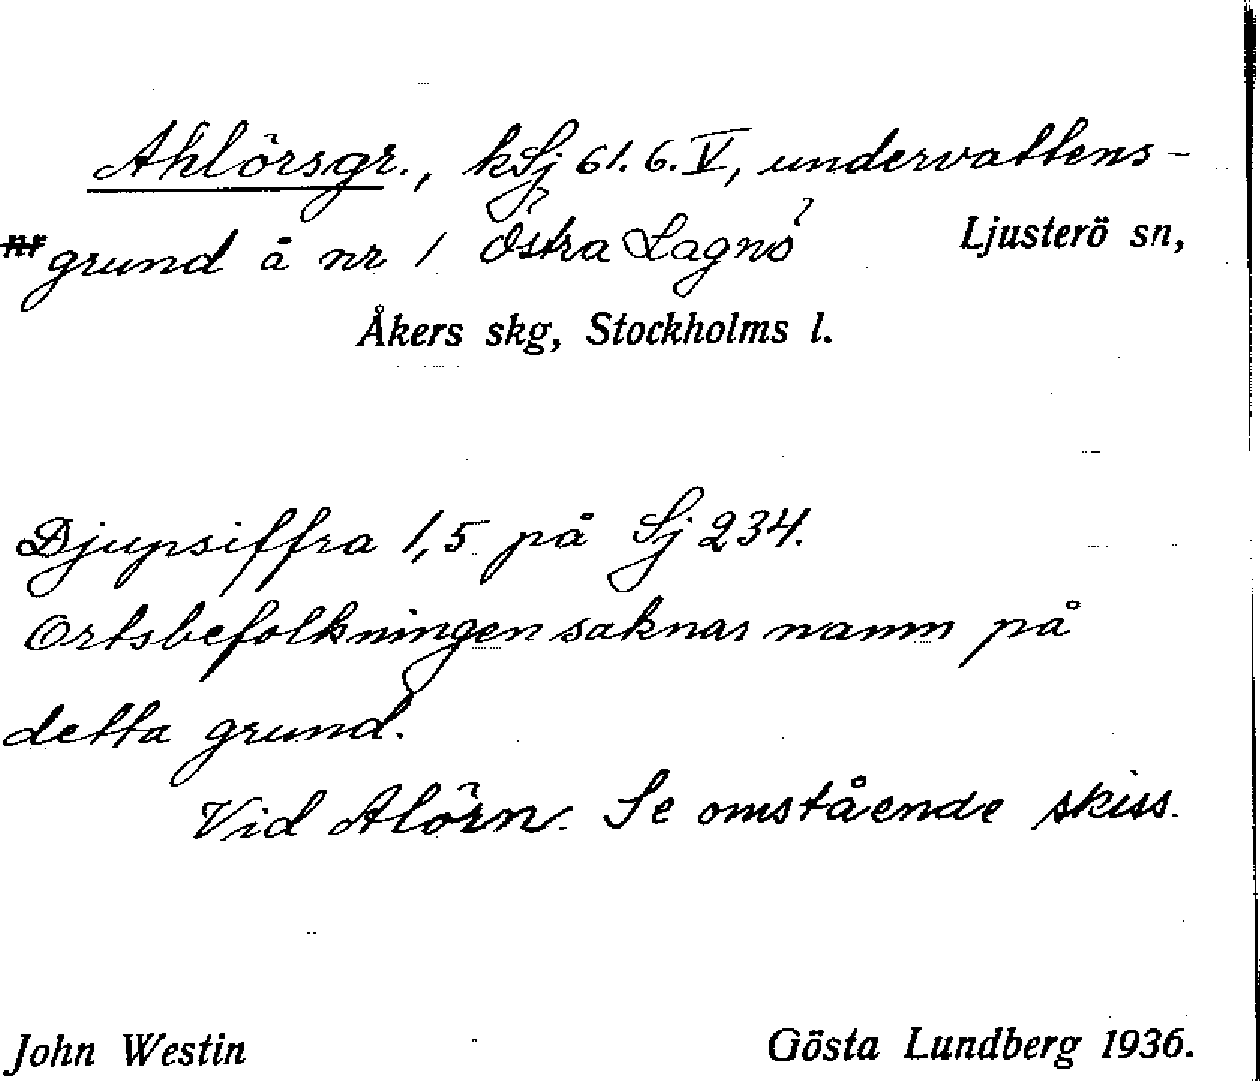 Ahlörsgr., kSj 61.6.V, undervattens-
nr grund å nr 1 Östra Lagnö Ljusterö sn,
Åkers skg, Stockholms l.
Djupsiffra 1,5 på Sj 234.
Ortsbefolkningen saknar namn på
detta grund.
Vid Alörn. Se omstående skiss.
John Westin Gösta Lundberg 1936.